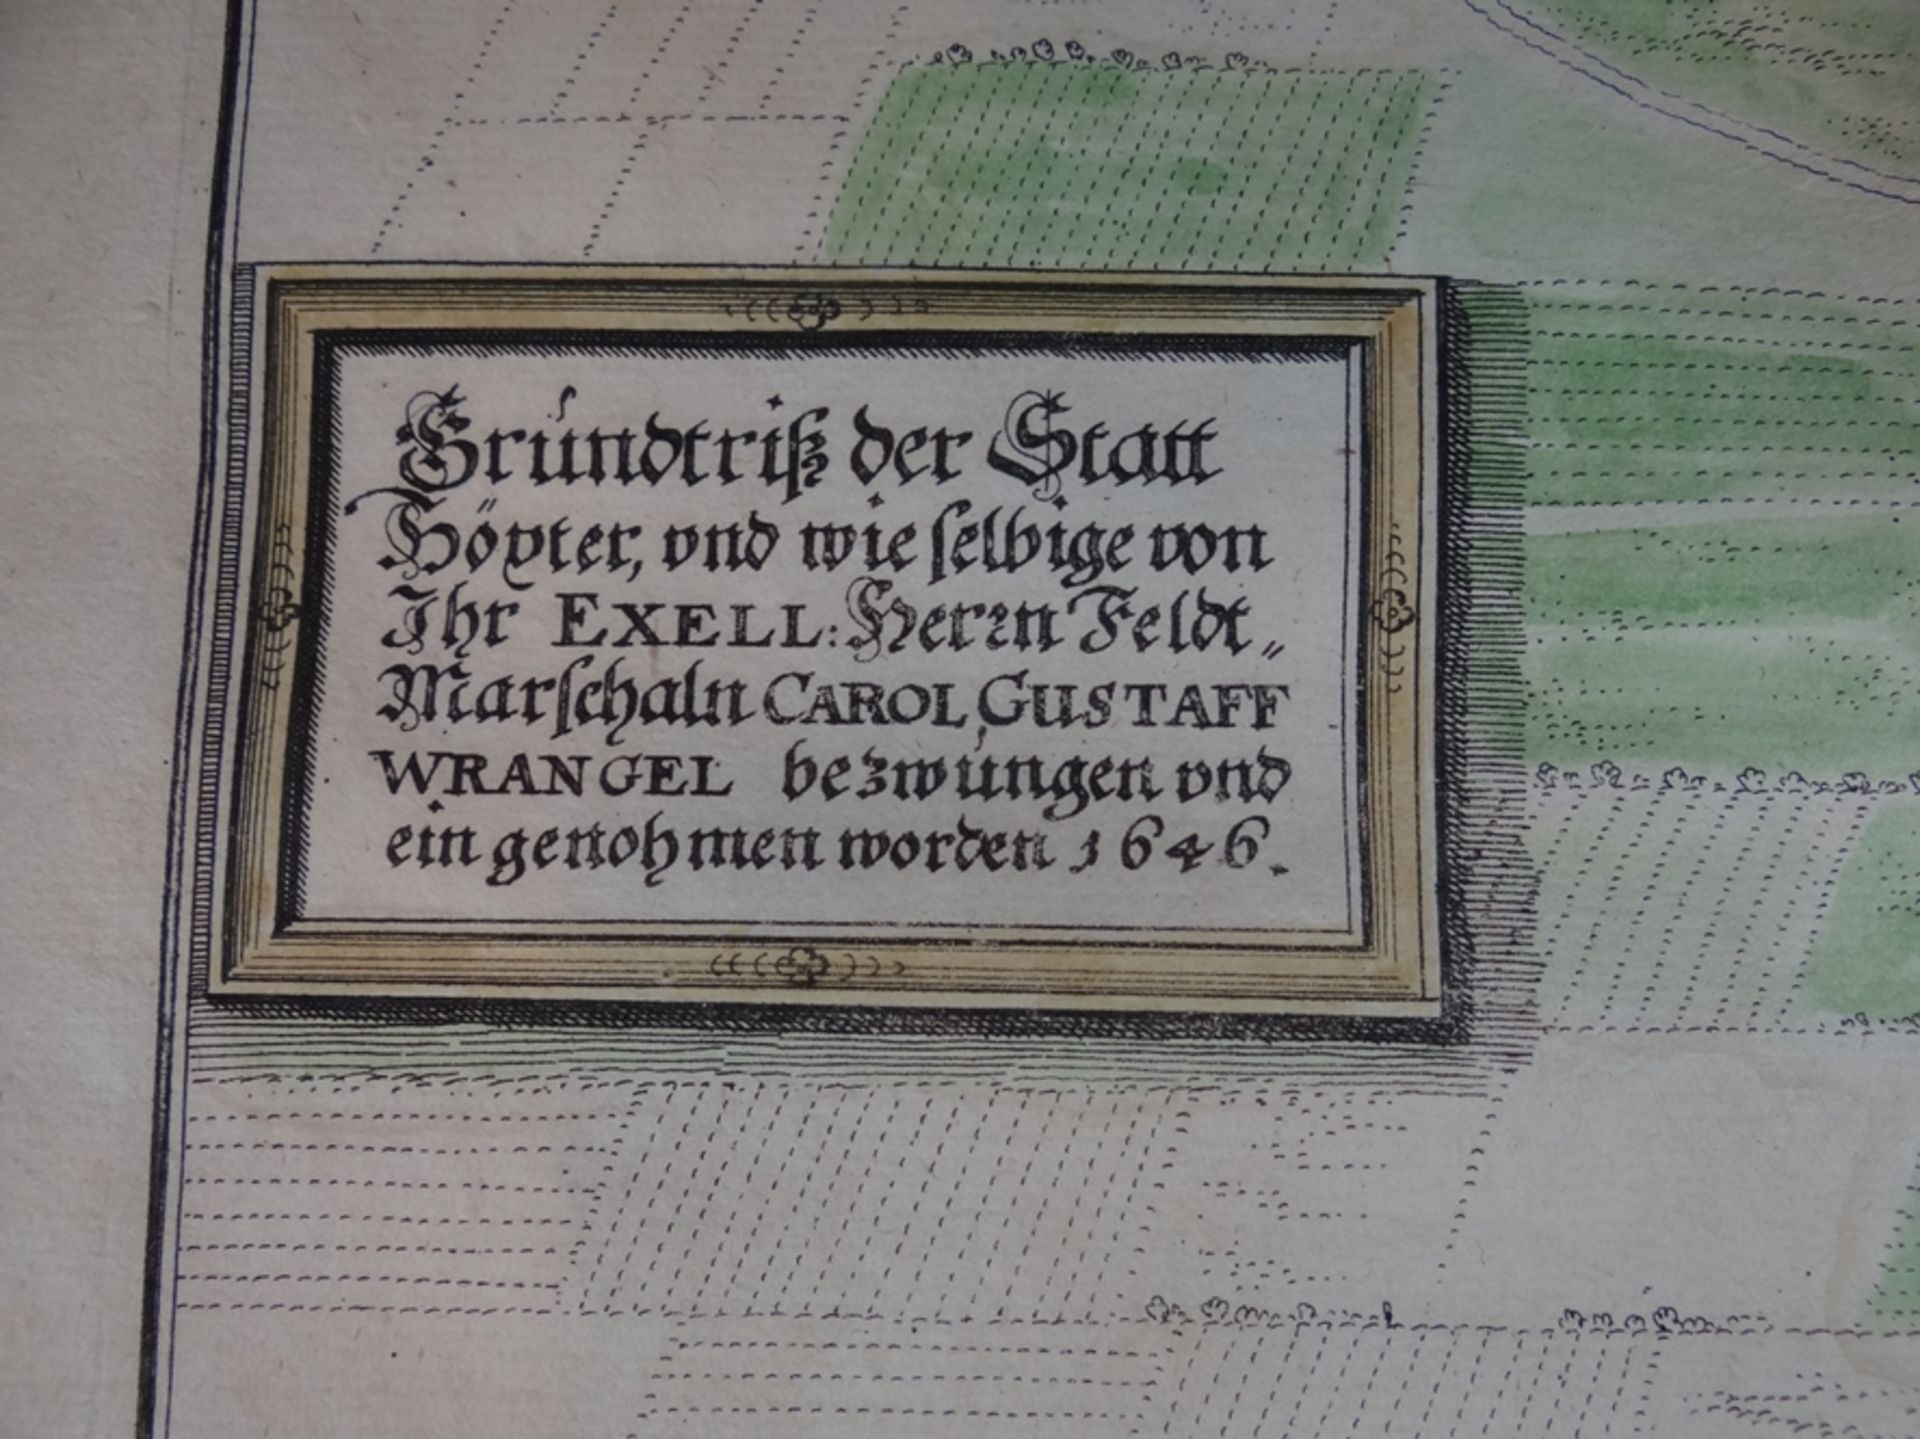 Grúndtriß der Statt
Höxter, vnd wie selbige von
Ihr EXELL: Herrn Feldt„
Marschaln CAROL GUSTAFF
WRANGEL bezwúngen vnd
ein genohmen worden 1646.